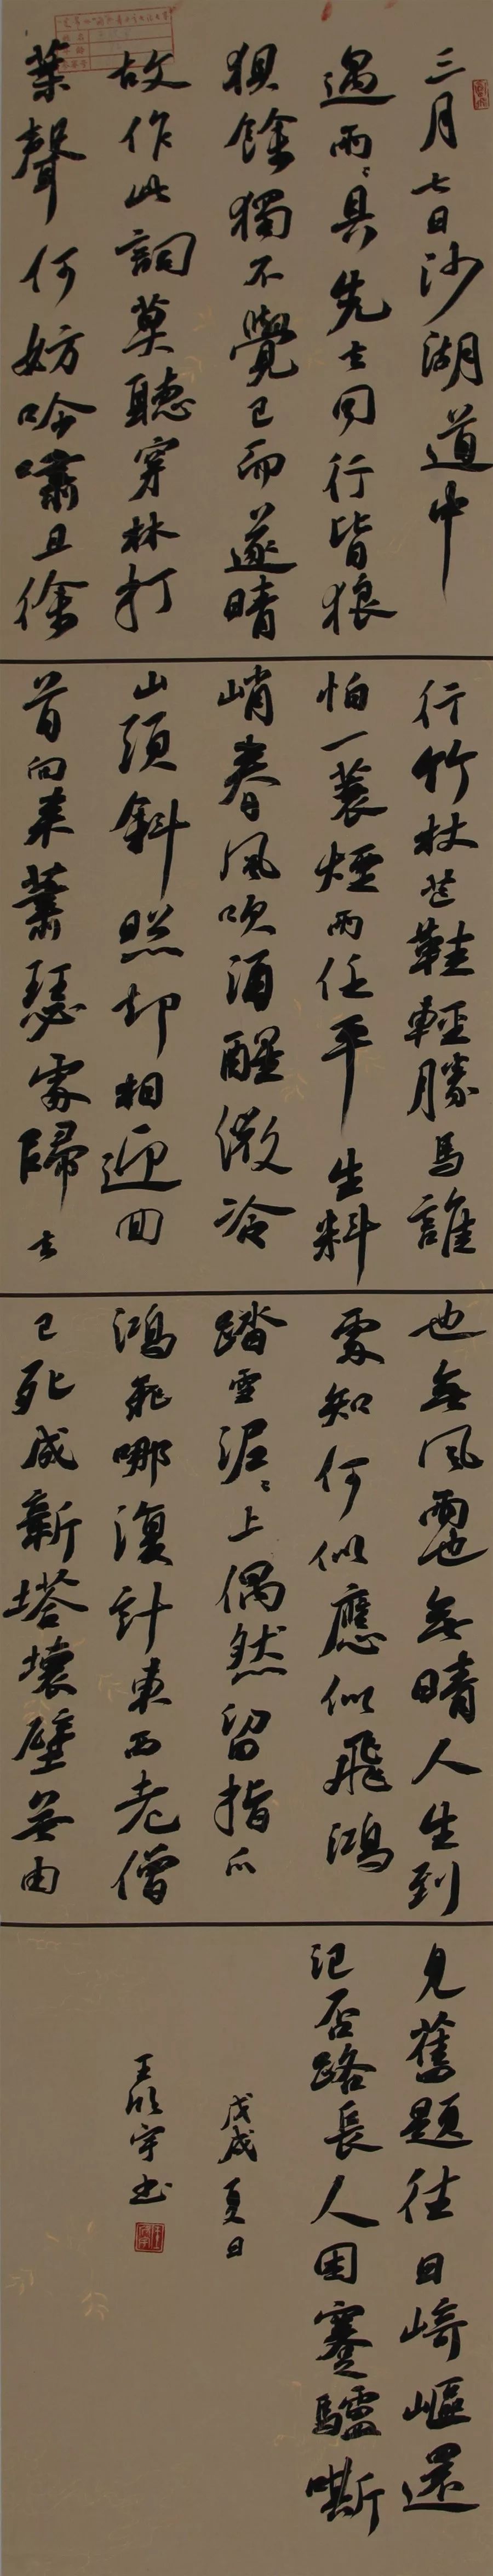 三月七日沙湖道中
遇雨〻具先去同行皆狼
狽餘獨不覺已而遂晴
故作此詞莫聽穿林打
葉聲何妨吟嘯且徐
行竹杖芒鞋輕勝馬誰
怕一蓑煙雨任平生料
峭春風吹酒醒微冷
山頭斜照却相迎回
首向來蕭瑟處歸去
也無風雨也無晴人生到
處知何似應似飛鴻
踏雪泥〻上偶然留指爪
鴻飛哪復計東西老僧
已死成新塔壞壁無由
見舊題往日崎嶇還
記否路長人困蹇驢嘶
戊戌夏日
王宇书